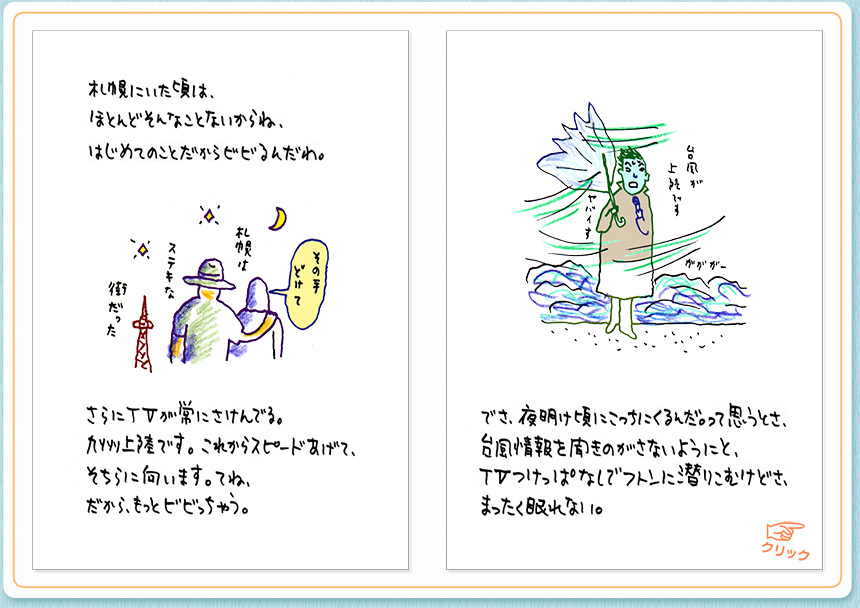 札幌にいた頃は、
ほとんどそんなことないからね、
はじめてのことだからビビるんだわ。
札幌は
ステキな
街だった
その手
どけて
さらにTVが常にさけんでる。
九州上陸です。これからスピードあげて、
そちらに向います。てね、
だから、もっとビビっちゃう。
台風が
上陸です
ヤバイす
ががガー
でさ、夜明け頃にこっちにくるんだ。って思うとさ、
台風情報を聞きのがさないようにと、
TVつけっぱなしでフトンに潜りこむけどさ、
まったく眠れない。
クリック